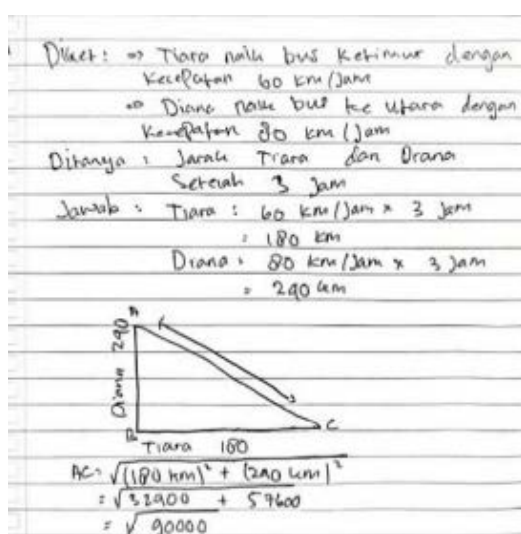 Diket : => Tiara naik bus ketimur dengan
kecepatan 60 km/jam
=> Diana naik bus ke utara dengan
kecepatan 80 km/jam
Ditanya : Jarak Tiara dan Diana
Setelah 3 Jam
Jawab : Tiara : 60 km/jam x 3 jam
= 180 km
Diana : 80 km/jam x 3 jam
= 240 km
A
Diana 240
B
C
Tiara 180
AC = √(180 km)² + (240 km)²
= √32400 + 57600
= √90000